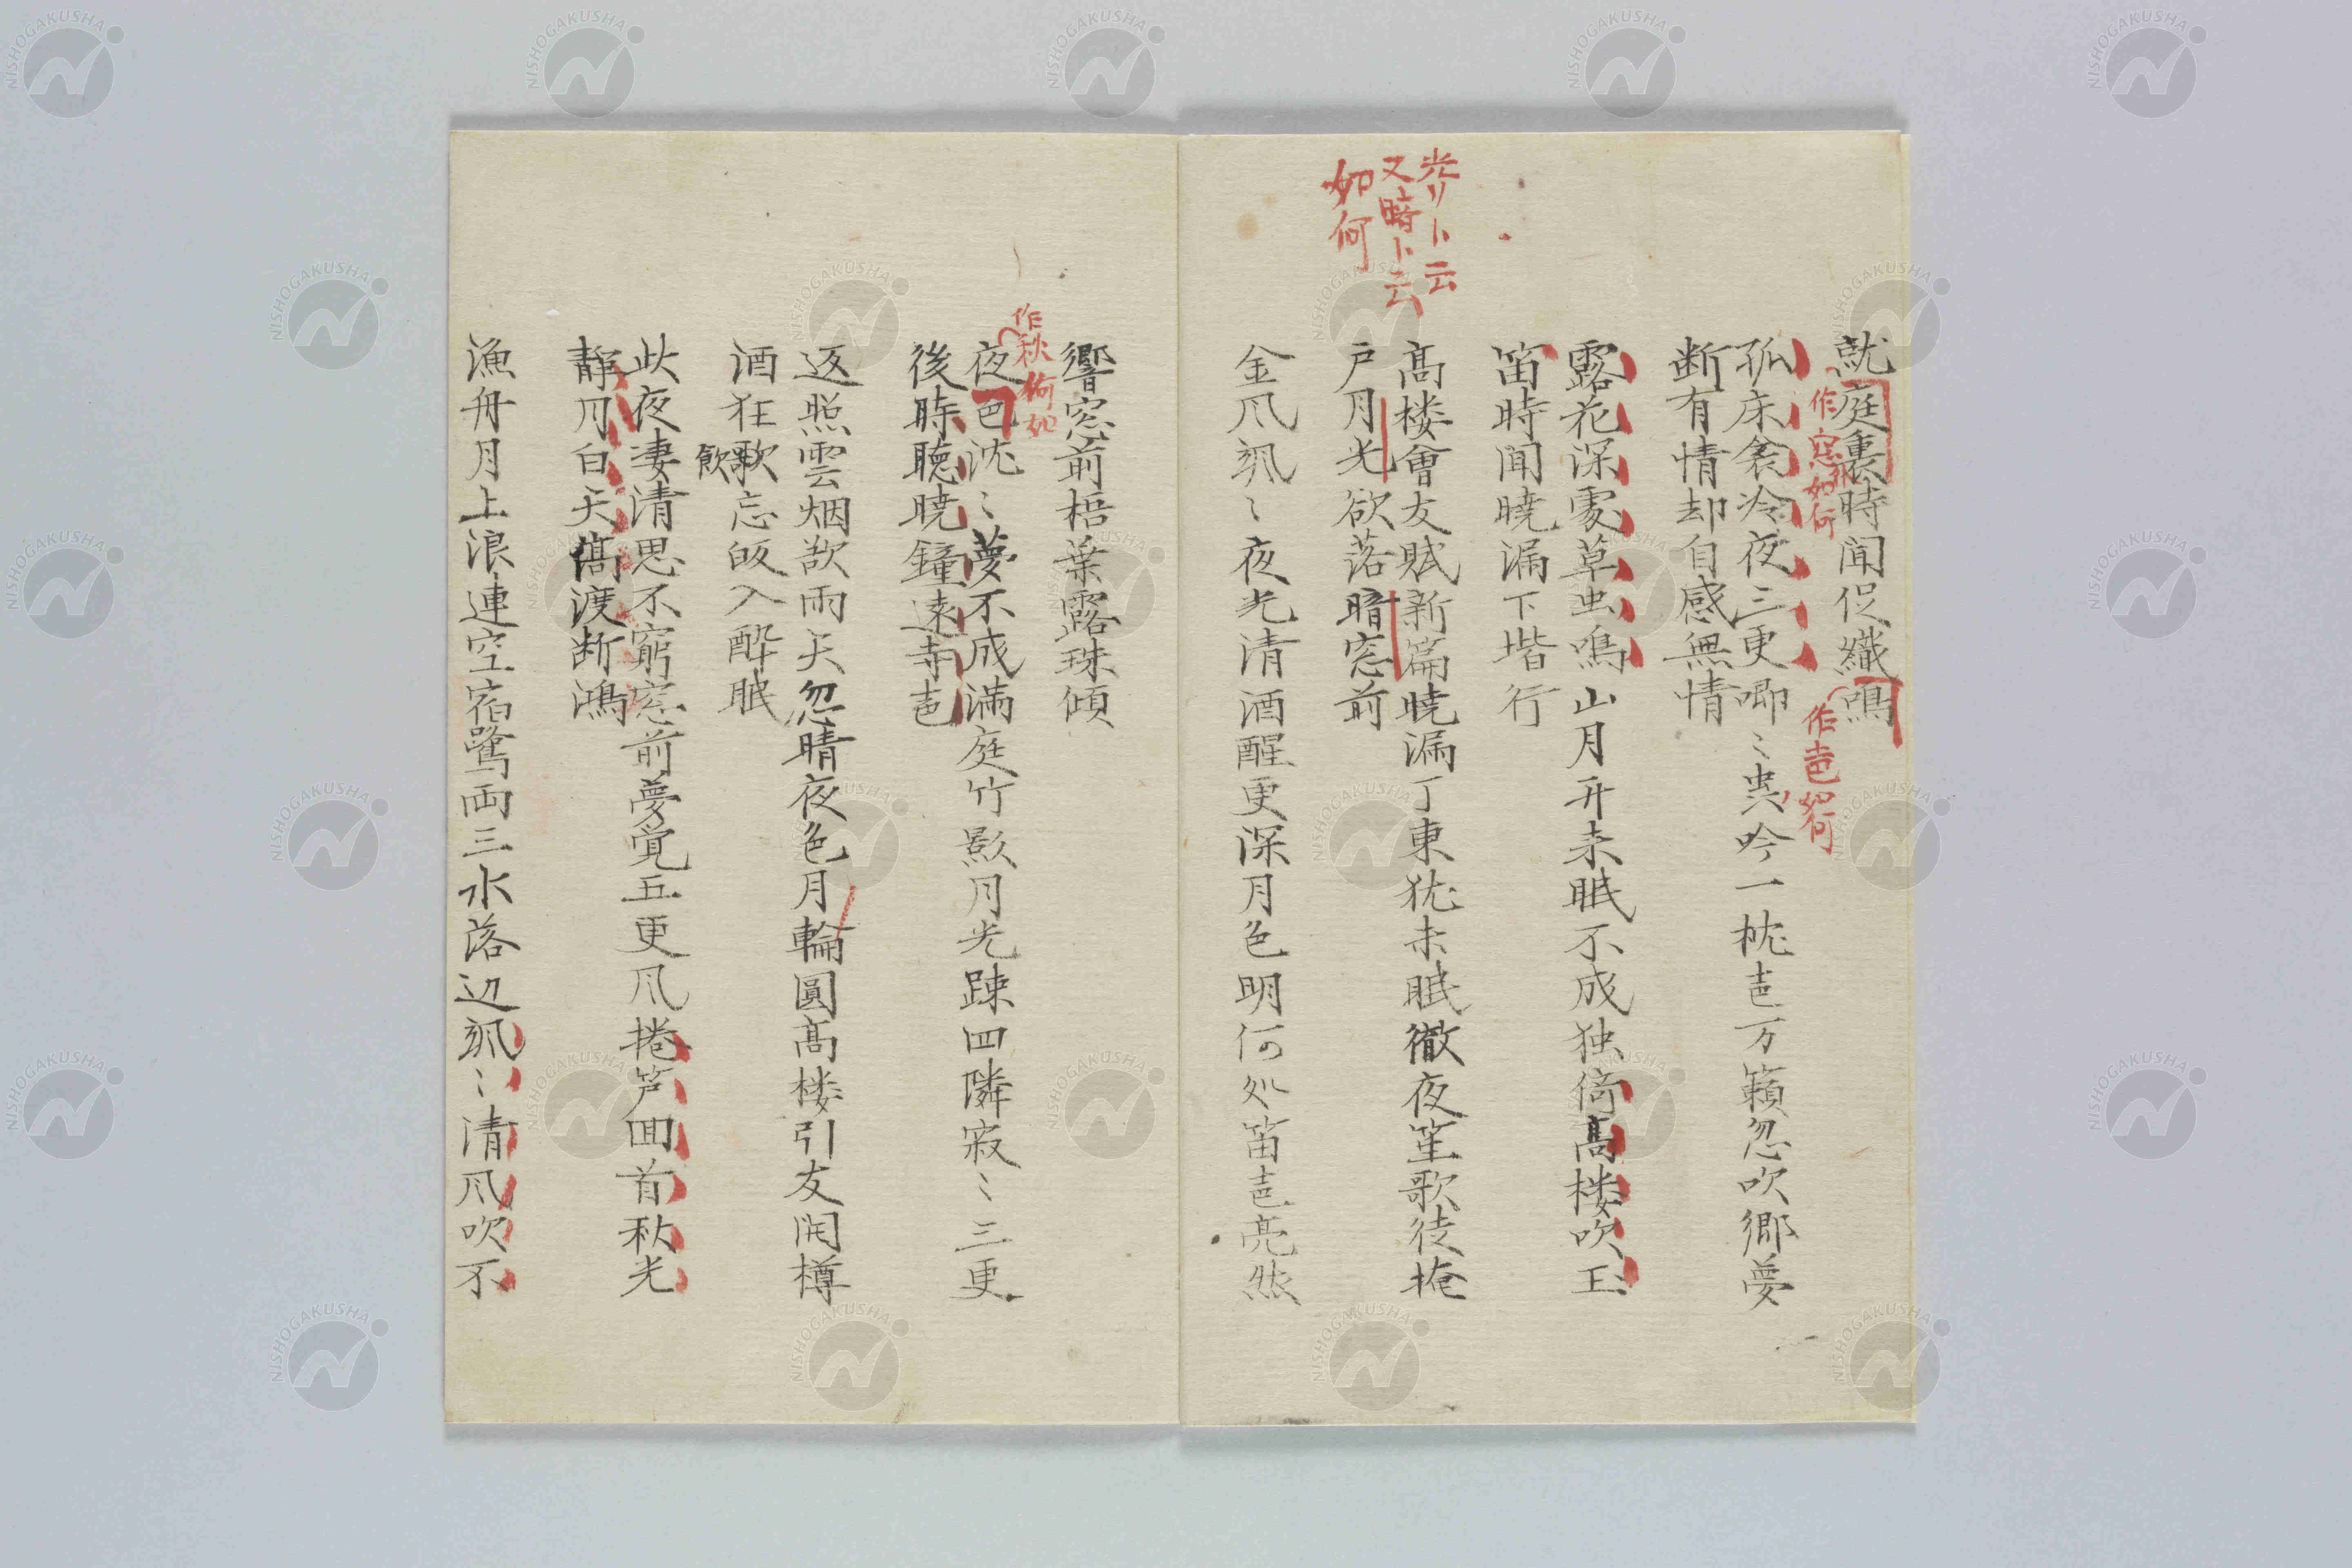 就庭裏時聞促織鳴
作窓外如何
作声如何
孤床衾冷夜三更喞〻虫吟一枕声万籟忽吹郷夢
断有情却自感無情
露花深処草虫鳴山月升来眠不成独倚高楼吹玉
笛時聞暁漏下堦行
光リト云
又暗ト云
如何
高楼會友賦新篇暁漏丁東猶未眠徹夜笙歌徒掩
戸月光欲落暗窓前
金風颯〻夜光清酒醒更深月色明何処笛声亮然
響窓前梧葉露珠傾
作秋如何
夜色沈〻夢不成満庭竹影月光疎四隣寂〻三更
後時聴暁鐘遠寺声
返照雲烟欲雨天忽晴夜色月輪圓高楼引友開樽
酒狂歌忘皈入酔眠
飲
此夜凄清思不窮窓前夢覚五更風捲簾回首秋光
静月白天高渡断鴻
漁舟月上浪連空宿鷺両三水落辺颯〻清風吹不
NISHOGAKUSHA